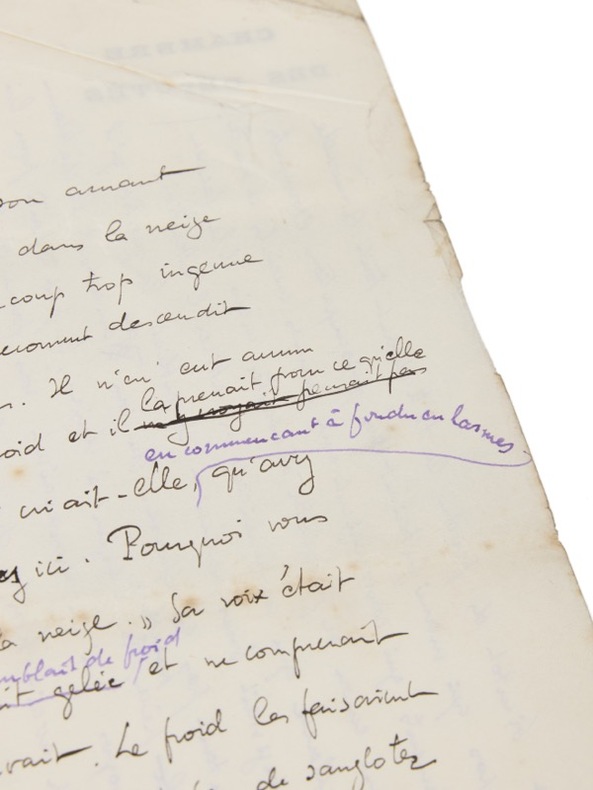 son amant
dans la neige
coup trop ingenue
descendit
Il n'en eut aucun
la prenait pour ce qu'elle
oid et il
en commençant à fondre en larmes
criait-elle, qu'avez
ici. Pourquoi vous
la neige. » Sa voix était
mblait de froid
it gelée et ne comprenait
vait. Le froid les faisaient
de sanglotez